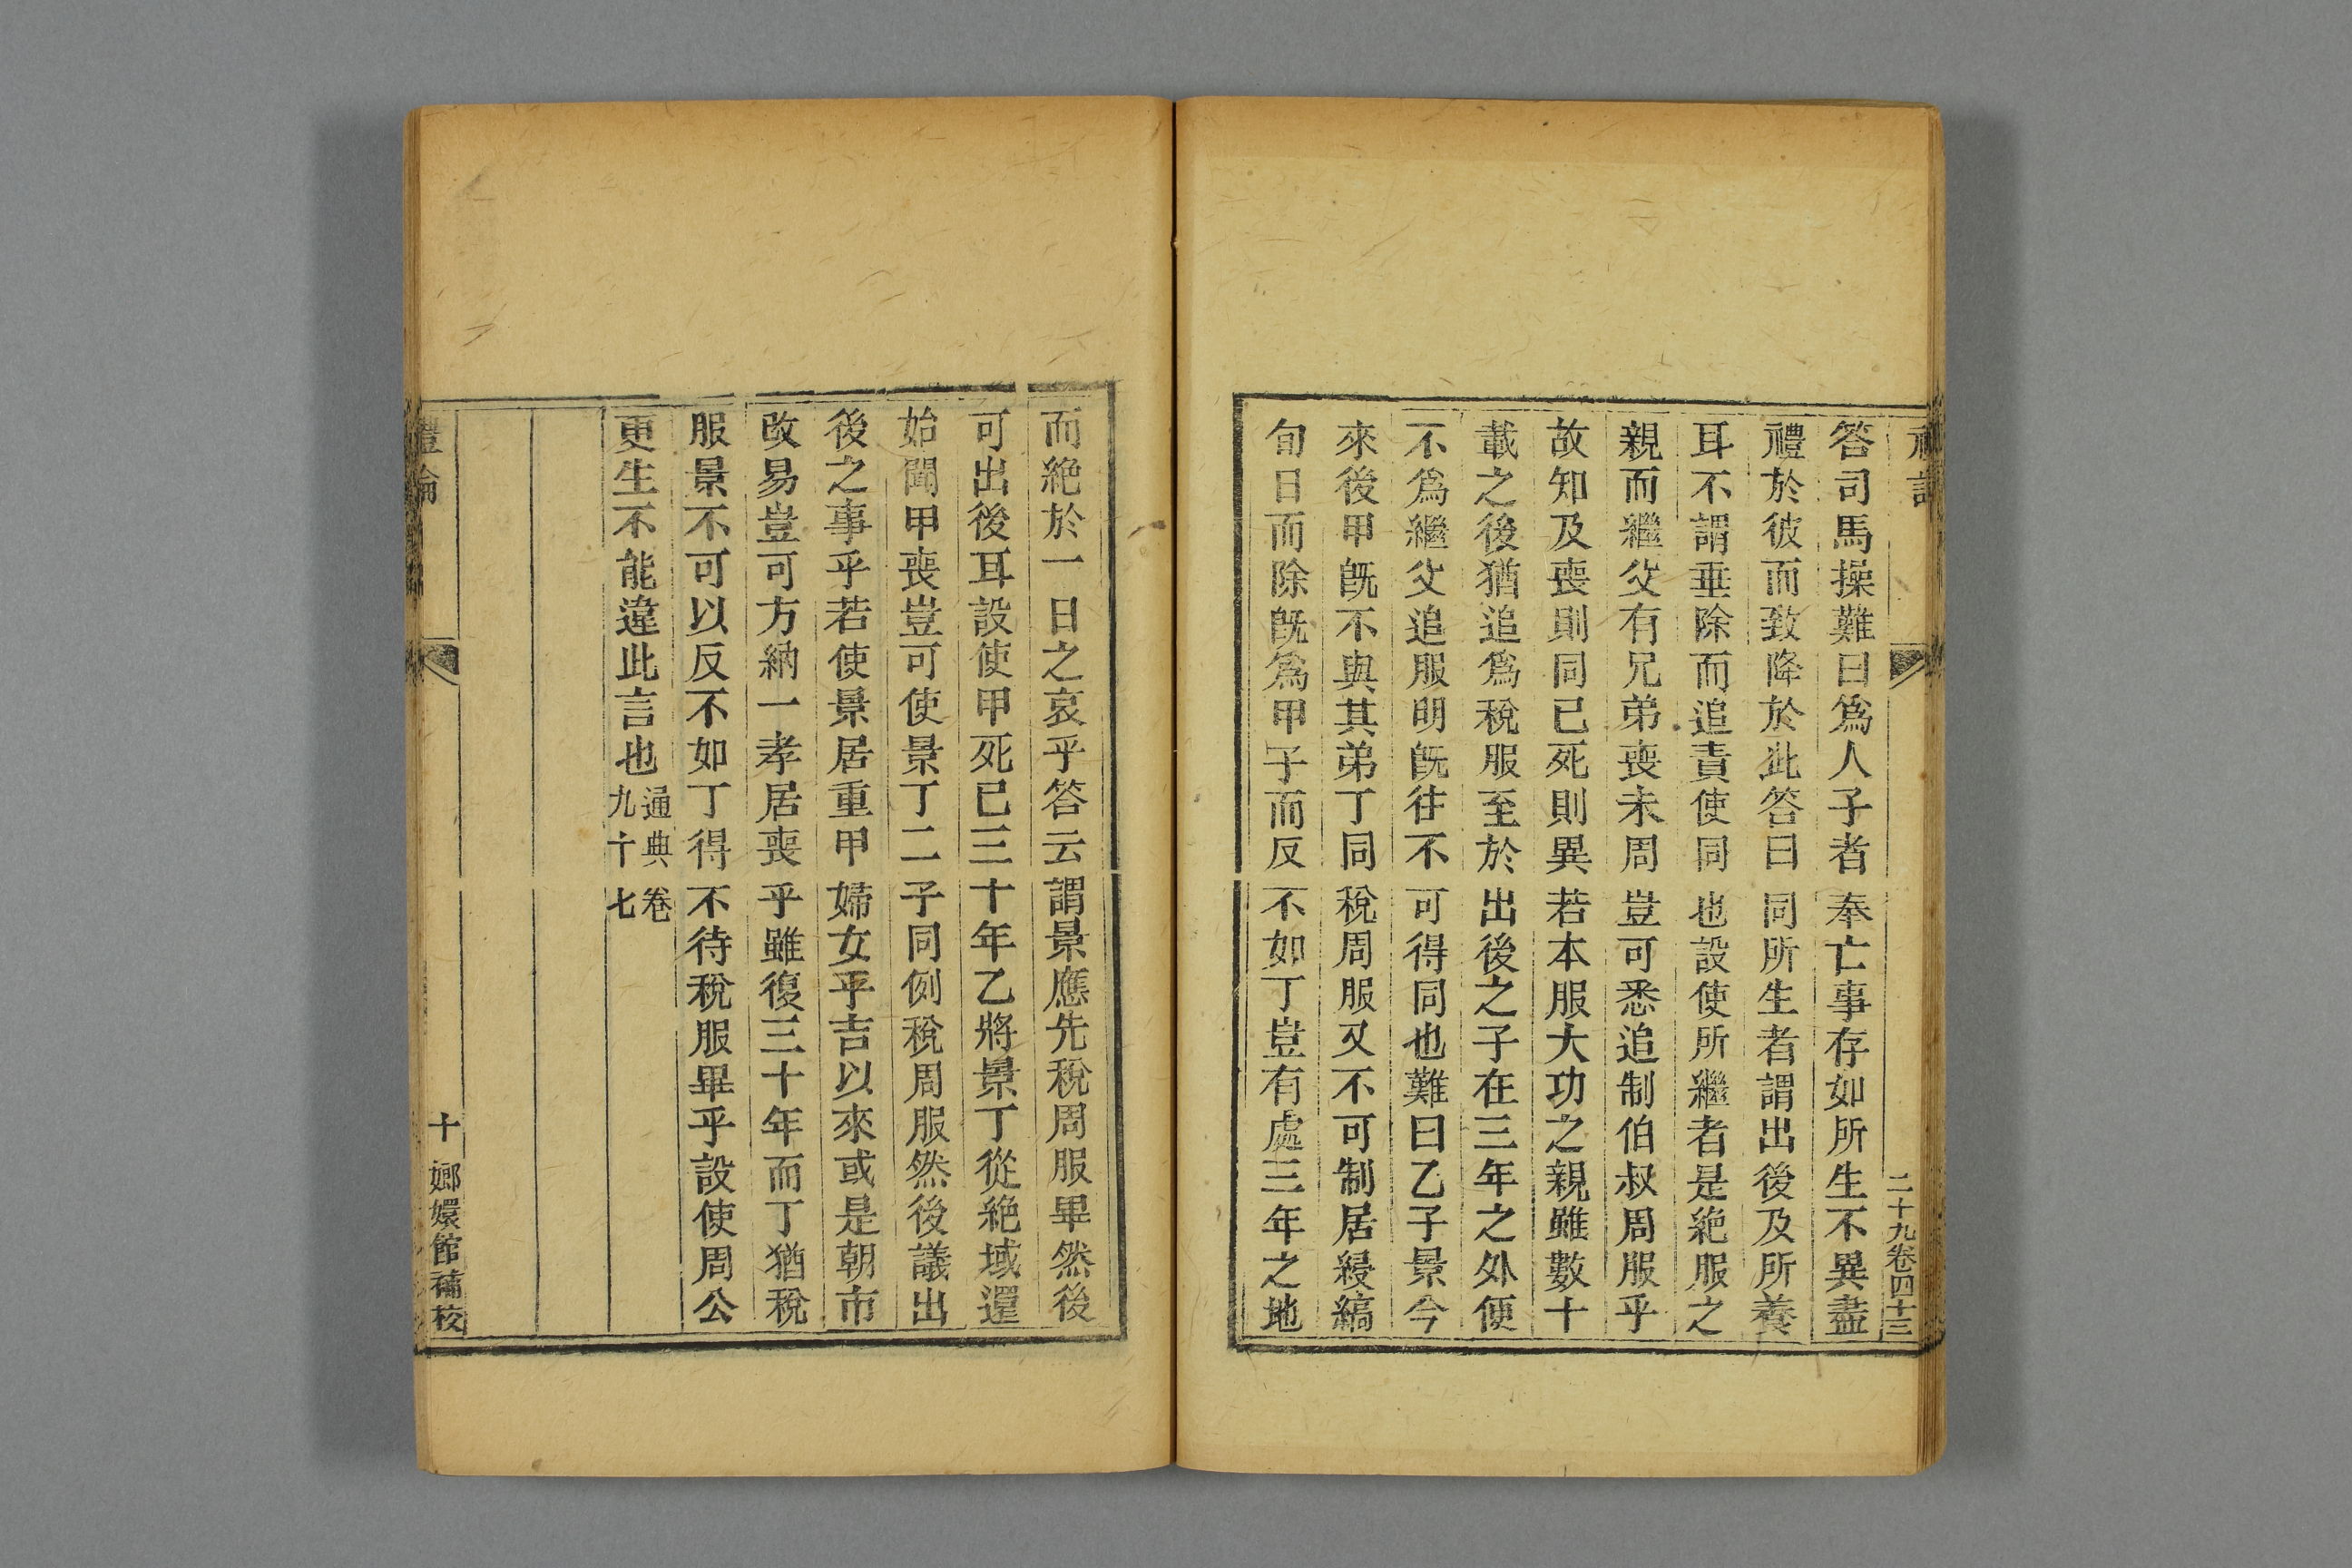 二十九卷四十三
答司馬操難曰爲人子者奉亡事存如所生不異盡
禮於彼而致降於此答曰同所生者謂出後及所養
耳不謂垂除而追責使同也設使所繼者是絶服之
親而繼父有兄弟喪未周豈可悉追制伯叔周服乎
故知及喪則同已死則異若本服大功之親雖數十
載之後猶追爲稅服至於出後之子在三年之外便
不爲繼父追服明旣往不可得同也難曰乙子景今
來後甲旣不與其弟丁同稅周服又不可制居縗縞
旬日而除旣爲甲子而反不如丁豈有處三年之地
而絶於一日之哀乎答云謂景應先稅周服畢然後
可出後耳設使甲死已三十年乙將景丁從絶域還
始聞甲喪豈可使景丁二子同例稅周服然後議出
後之事乎若使景居重甲婦女平吉以來或是朝市
改易豈可方納一孝居喪乎雖復三十年而丁猶稅
服景不可以反不如丁得不待稅服畢乎設使周公
更生不能違此言也通典卷九十七
禮論
十
嫏嬛館補校